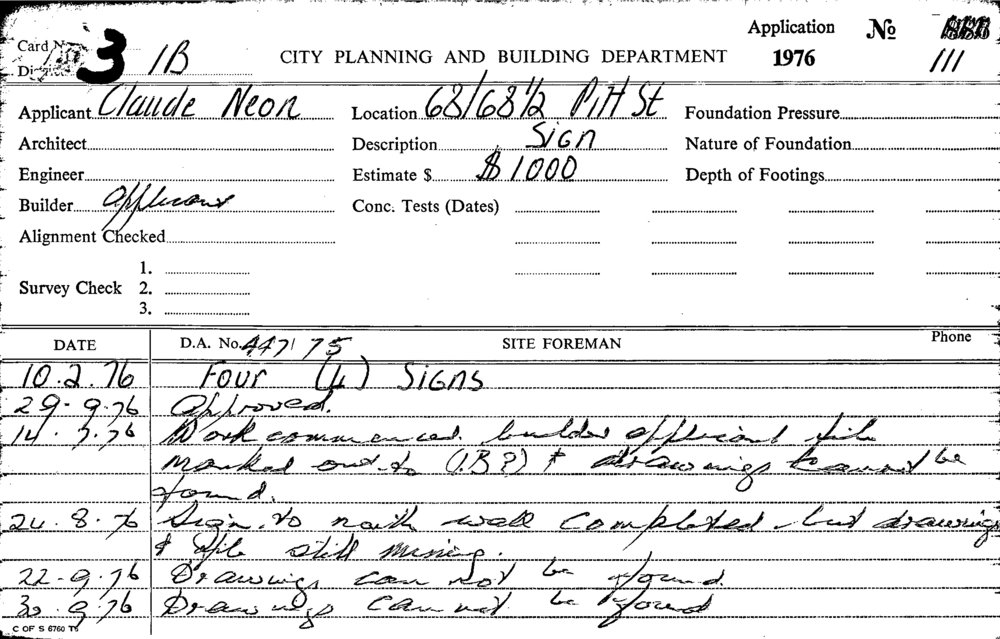 Card No. 3 1B
District
CITY PLANNING AND BUILDING DEPARTMENT
Application No
1976 111
Applicant Claude Neon Location 68/68½ Pitt St Foundation Pressure
Architect Description Sign Nature of Foundation
Engineer Estimate $ $1000 Depth of Footings
Builder Applicant Conc. Tests (Dates)
Alignment Checked
1.
Survey Check 2.
3.
DATE D.A. No. 447/75 SITE FOREMAN Phone
10.2.76 Four (4) Signs
29-9.76 Approved.
14.7.76 Work commenced. builder applicant file
marked out to (I.B?) & drawings cannot be
found.
24.8.76 Sign to north wall completed but drawings
& file still missing.
22-9.76 Drawings can not be found.
30.9.76 Drawings cannot be found
C OF S 6760 TS